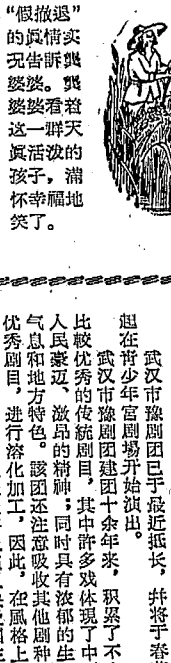 “假撤退”
的眞情实
况告訴
婆婆。
婆婆看着
这一群天
眞活泼的
孩子，满
怀幸福地
笑了。
武汉市豫剧团已于最近抵长，幷将于春
起在青少年宫剧場开始演出。
武汉市豫剧团建团十余年来，积累了不
比較优秀的传統剧目，其中許多戏体現了中
人民豪迈、激昂的精神；同时具有浓郁的生
气息和地方特色。該团还注意吸收其他剧种
优秀剧目，进行溶化加工，因此，在風格上